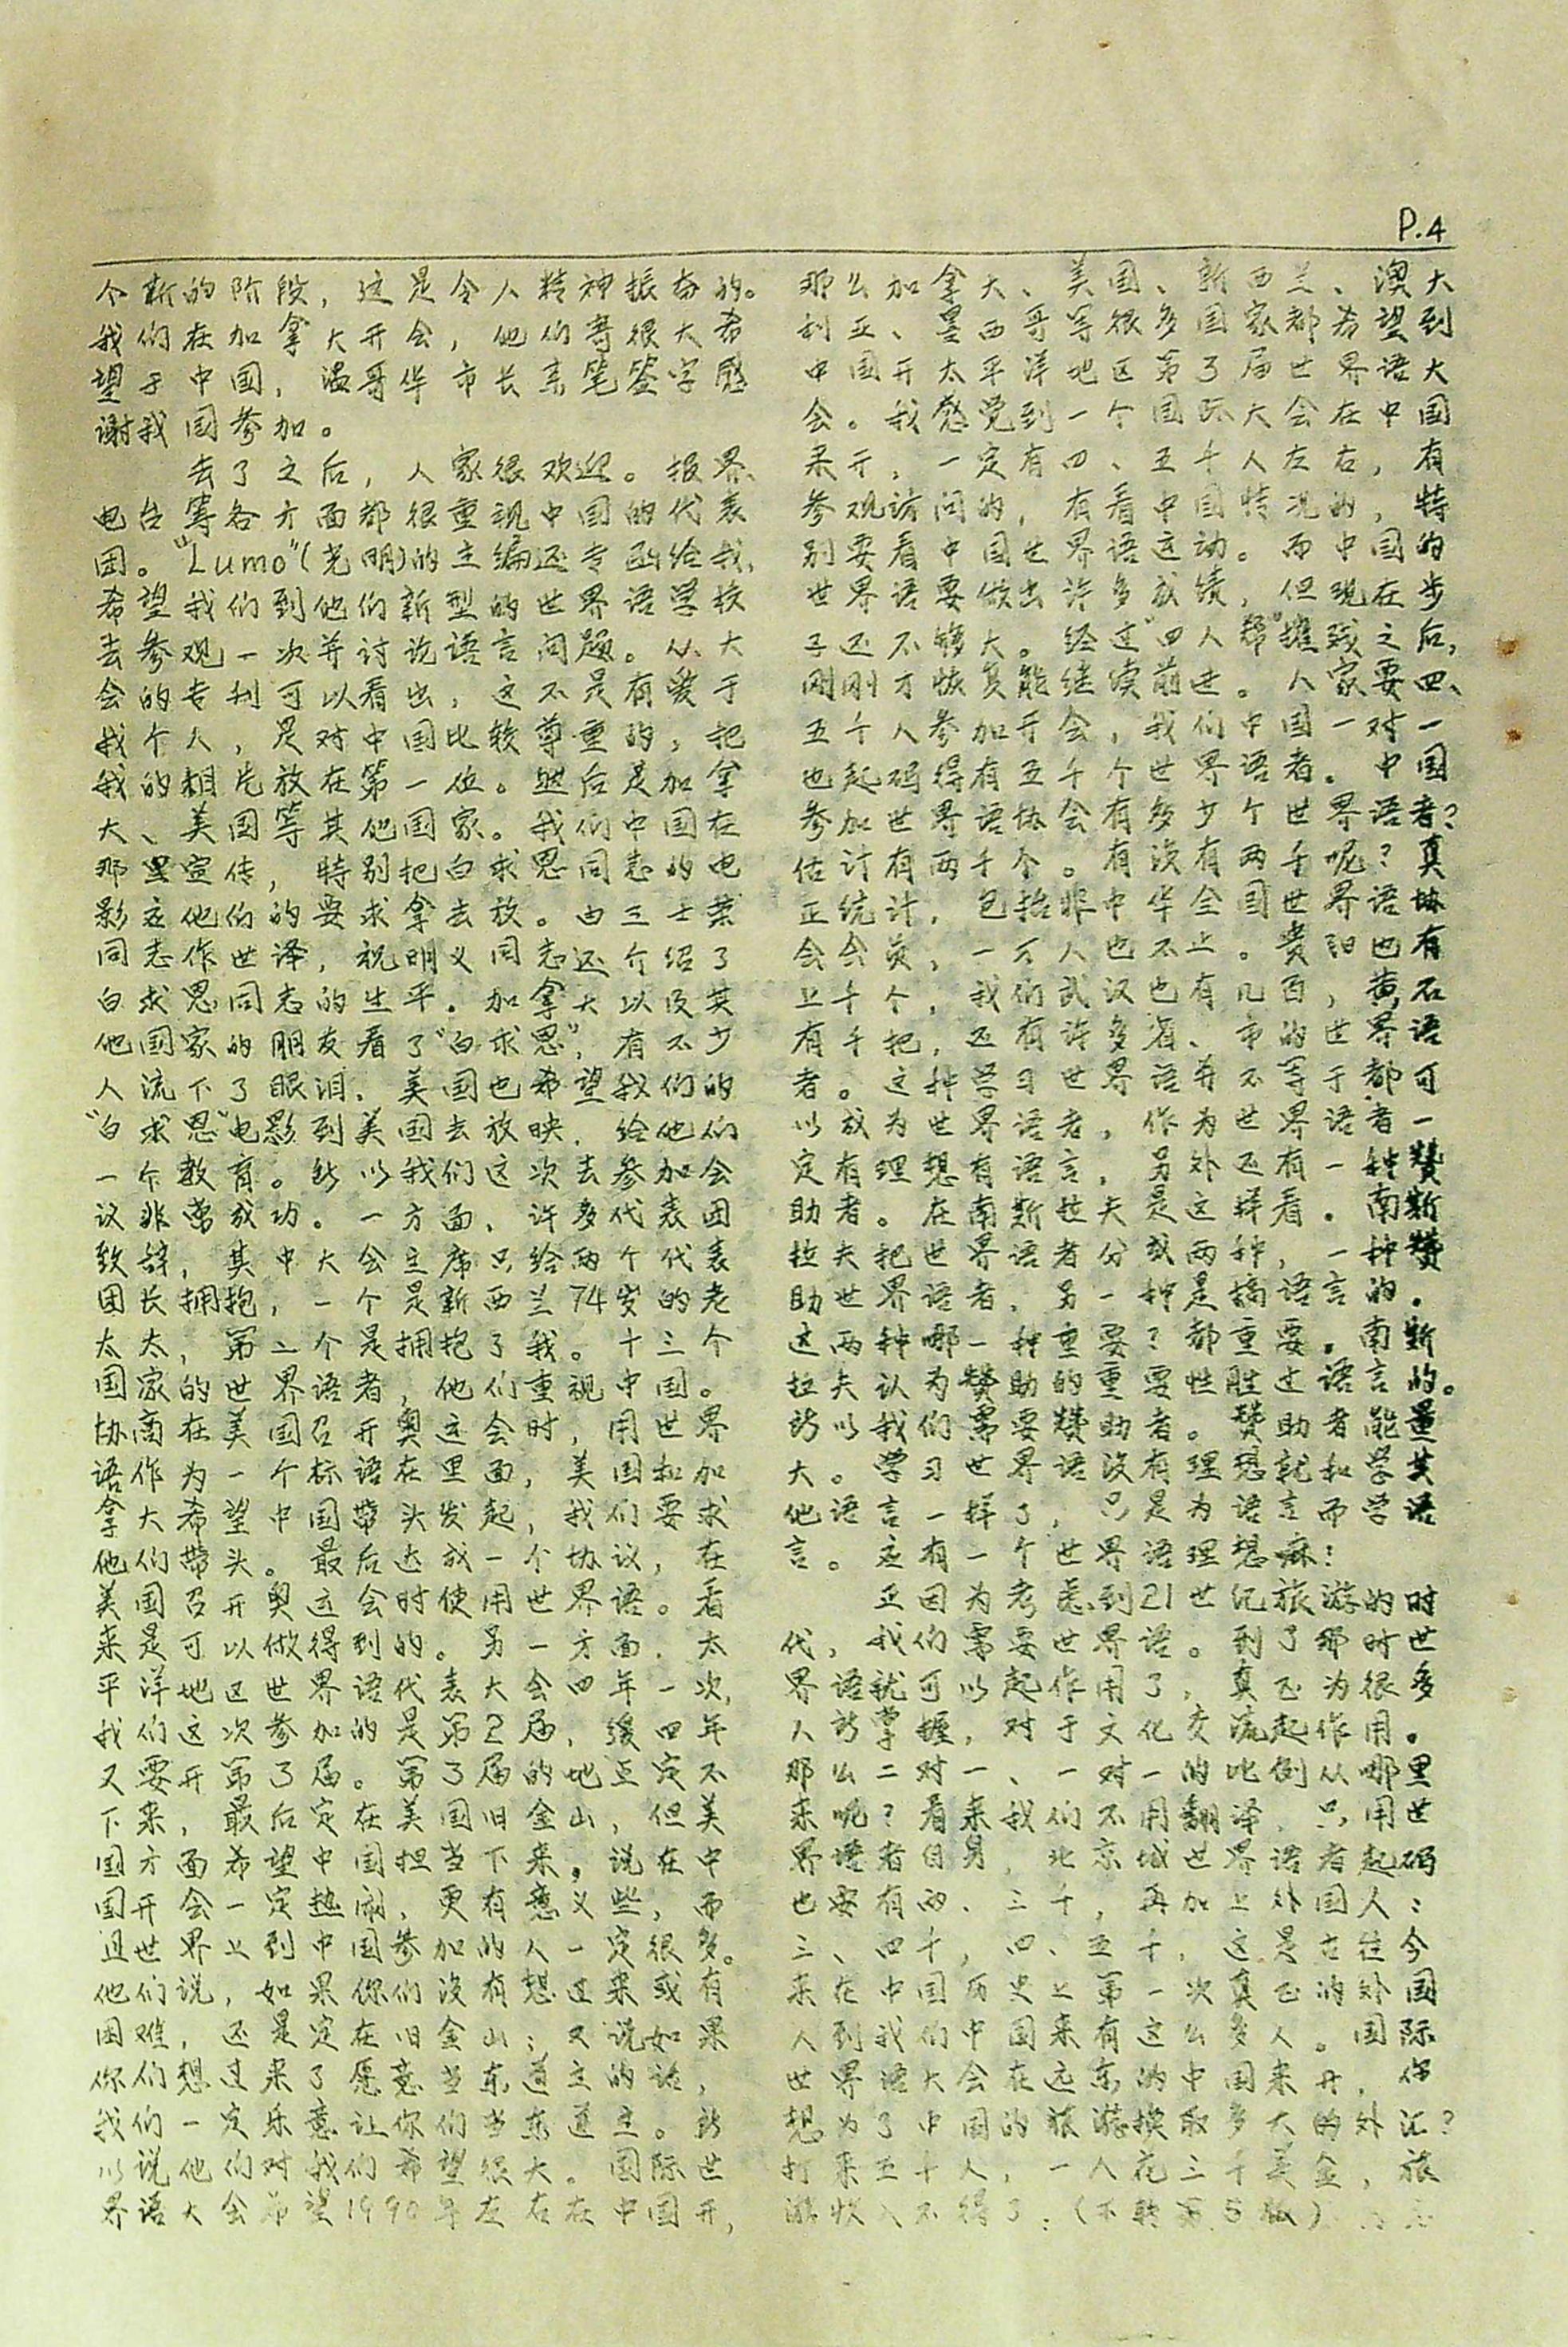 P.4
个新的阶段，这是令人精神振奋的。
我们在加拿大开会，他们寄很大希
望于中国，温哥华市长亲笔签字感
谢我国参加。
去了之后，人家很欢迎。报界、
电台等各方面都很重视中国的代表
团。“Lumo”(光明)的主编还专函给我，
希望我们到他们新型的世界语学校
去参观一次并讨论语言问题。从大
会的专刊可以看出，这不是有爱于
我个人，是对中国比较尊重的，把
我的相片放在第一位。然后是加拿
大、美国等其他国家。我们中国在
那里宣传，特别把白求恩同志的电
影应他们的要求拿去放。由王士荣
同志作世译，祝明义同志还介绍了
白求恩同志的生平。加拿大以及其
他国家的朋友看了“白求恩”，有不少
人流下了眼泪。美国也希望我们的
“白求恩”电影到美国去放映，给他们
一个教育。所以我们这次去参加会
议非常成功。一方面、许多代表团
致辞，其中大会主席只给两个代表
团长拥抱，一个是新西兰74岁的老
太太，第二个是拥抱了我。十三个
国家的世界语者，他们重视中国。
协商在美国召开奥运会时，用世界
语作为一个标语在里面，美国和加
拿大希望中国带头发起，我们要求
他们带头。最后达成一个协议，在
美国召开奥运会时使用世界语。看
来是可以做得到的。另一方面．太
平洋地区世界语代表大会四年一次，
我们这次参加的是第2届，缓四年
又要开第3届。第3届的地点定不
下来，最后定在美国旧金山，但美
国方面希望中国担当下来，说在中
国开会一定热闹、更有意义些，而
且世界上到中国参加的人一定很多。
他们说，如果你们没有想过来或有
困难，还是定在旧金山；又说如果
你们想过来了愿意当东道主的话，
我们一定乐意让你们当东道主。所
以说他们对我们希望很大。国际世
界语大会希望1990年左右在中国开，
那么加拿大、美国、新西兰、澳大
利亚、墨西哥等很多国家都希望到
中国开太平洋地区第3届世界语大
会。我感觉到一个国际大会在中国
来开，一定有四、五千人左右，有
参观访问的，有看中国情况的，特
别要看中国世界语运动。而中国的
世界语要做出许多成绩，但现在步
子还不够大。经过“四人帮”摧残之后，
刚刚才恢复能继续前进。人家要四、
五千人参加开会，我们中国一对一
也起码得有五千个世界语者。中国
参加世界语协会有多少个世界语者？
估计有两千个。有没有两千呢？真
正统计，包括非中华全国世界语协
会会员，一万人也不止。贵阳也有
上千个，我们武汉也有几百，黄石
有千把，还有许多省、市的世界语
者。这种学习世界语并不等于都可
以成为世界语者，作为世界语者一
定有理想有语言，另外还有一种赞
助者。在南斯拉夫是这样看．南斯
拉夫把世界语者分成两种，一种赞
助世界语者，另一种是搞语言的．
这两种哪一种重要？都重要。南斯
拉夫认为赞助的重要性胜过语言的。
所以我们需要赞助者。赞助者能量
大。学习世界语没有理想就和学其
他语言一样了，只是为语言而学语
言。应有一个世界语理想嘛！
正因为考虑到21世纪旅游的时
代，我们需要世界语。到了那时世
界语就可以起作用了，真正为很多
人所掌握，对于文化交流起作用。
那么二对一、一对一的比例从哪里
来呢？看来我们不用翻译．只用世
界语者自身，北京城世界语者起码
也要有两、三千，再加上外国人：
三、四千，四、五千，这是古往今
来在中国历史上第一次真正的外国
人到我们中国来有这么多人。国际
世界语大会在远东的中国来开，你
想为了中国的旅游换取多大的外汇？
打来五千人，一人花三千美金，旅
游收入不得了：(下转第5版)